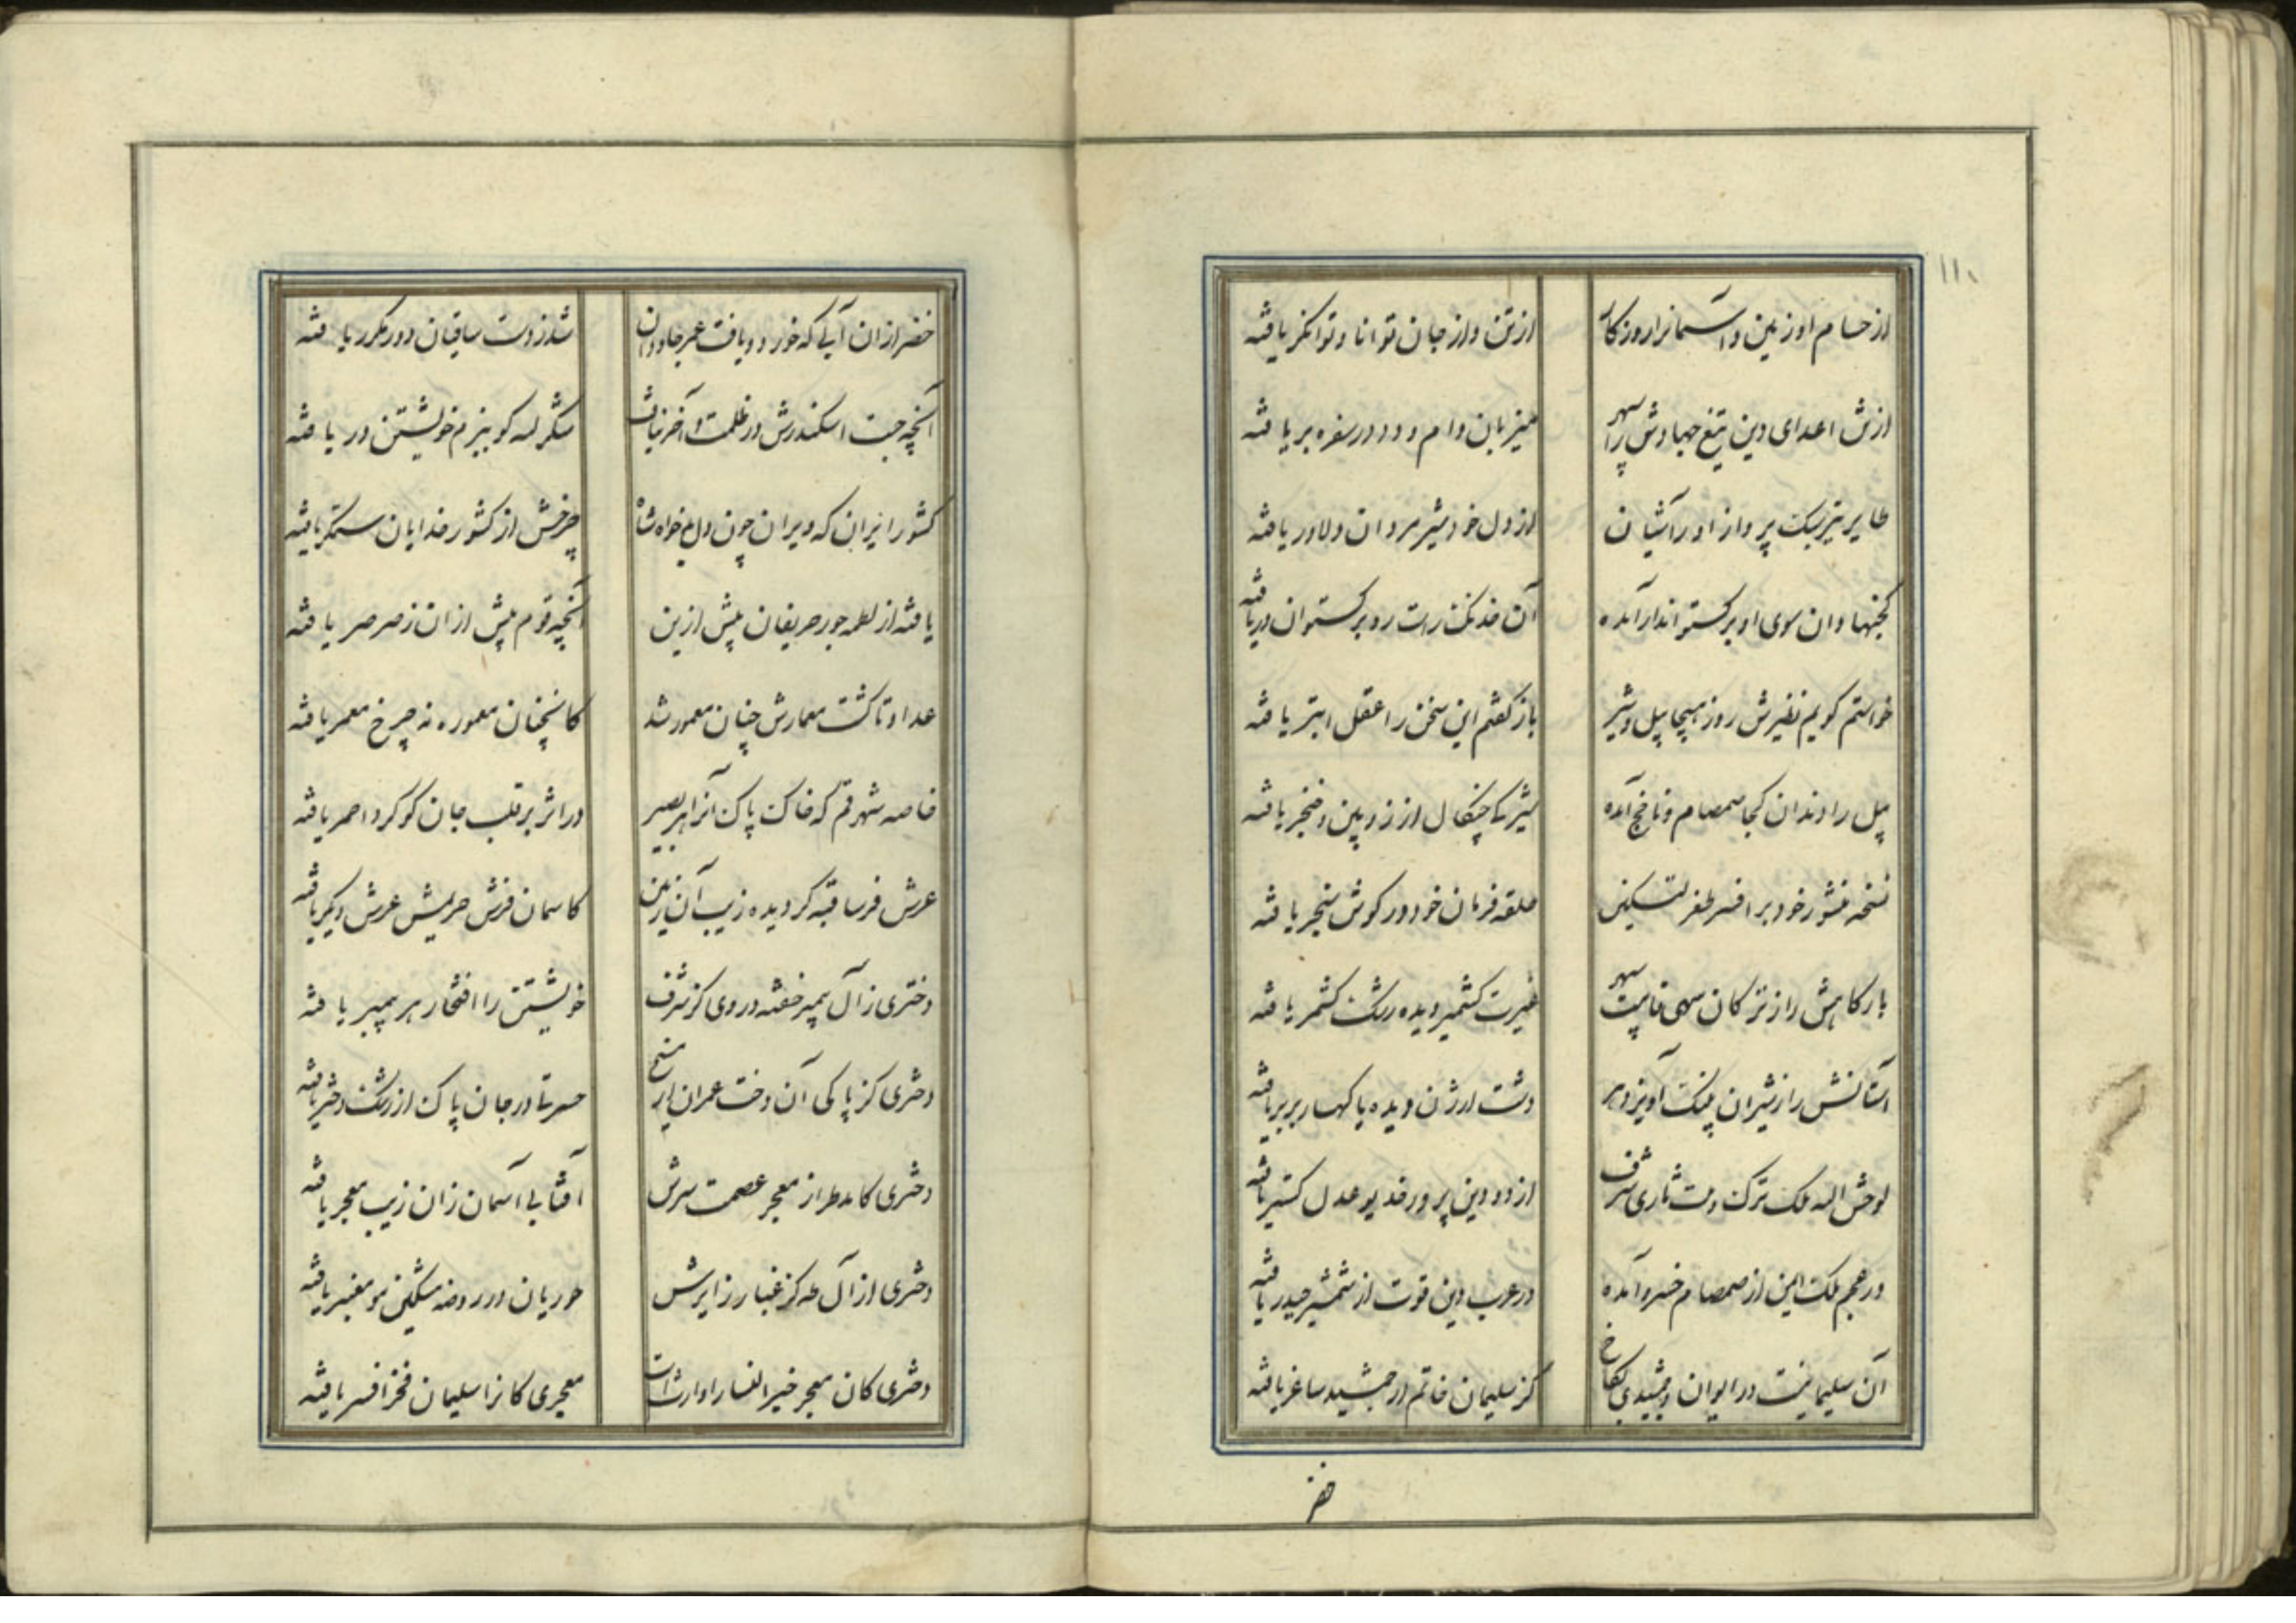 ۱۱۰
از حسام او زمین و آسمانرا روزگار
از تن و از جان توانا و توانگر یافته
از تن اعدای دین تیغ جهادش را سپهر
میزبان دام و دد در سفره بر یافته
طایر تیر سبک پرواز او را آشیان
از دل خود شیر مردان دلاور یافته
گنجها دان سوی او برگستواندار آمده
آن خدنک راست رو برگستوان در یافته
خواستم گویم نظیرش روز هیجا پیل و شیر
باز گفتم این سخن را عقل ابتر یافته
پیل را دندان کجا صمصام و ناچخ آمده
شیر کی چنگال از زوپین و خنجر یافته
نسخه منشور خود بر افسر طغرلتکین
حلقه فرمان خود در گوش سنجر یافته
بارگاهش را ز ترکان سهی قامت سپهر
غیرت کشمیر دیده رشک کشمر یافته
آستانش را ز شیران پلنک آویز دهر
دشت ارژن دیده یا کهسار بربر یافته
لوحش الله ملک ترک و ملت تازی شرف
از دو دین پرور خدیو عدل گستر یافته
در عجم ملک این از صمصام خسرو آمده
در عرب دین قوت از شمشیر حیدر یافته
آن سلیمانیست در ایوان و جمشیدی بکاخ
کز سلیمان خاتم از جمشید ساغر یافته
خضر
خضر از ان آبی که خورد و یافت عمر جاودان
شد ز دست ساقیان دور مکرر یافته
آنچه جست اسکندرش در ظلمت و آخر نیافت
شکر لله کو ببزم خویشتن در یافته
کشور ایران که ویران چون دل بدخواه شاه
چرخش از کشور خدایان ستمگر یافته
یافته از لطمه جور حریفان پیش ازین
آنچه قوم پیش از ان ز صرصر یافته
عدل او تا گشت معمارش چنان معمور شد
کانچنان معموره نه چرخ معمر یافته
خاصه شهر قم که خاک پاک آنرا هر بصیر
در اثر بر قلب جان گوگرد احمر یافته
عرش فرسا قبه گردیده زیب آن زمین
کاسمان فرش حریمش عرش دیگر یافته
دختری ز آل پیمبر خفته در وی کز شرف
خویشتن را افتخار هر پیمبر یافته
دختری کز پاکی آن دخت عمران را مسیح
حسرتا در جان پاک از رشک دختر یافته
دختری کامد طراز معجر عصمت سرش
آفتابی آسمان زان زیب معجر یافته
دختری از آل طه کز غبار زایرش
حوریان در روضه مشکین مو معنبر یافته
دختری کان معجر خیر النسا را وارث است
معجری کانرا سلیمان فخر افسر یافته